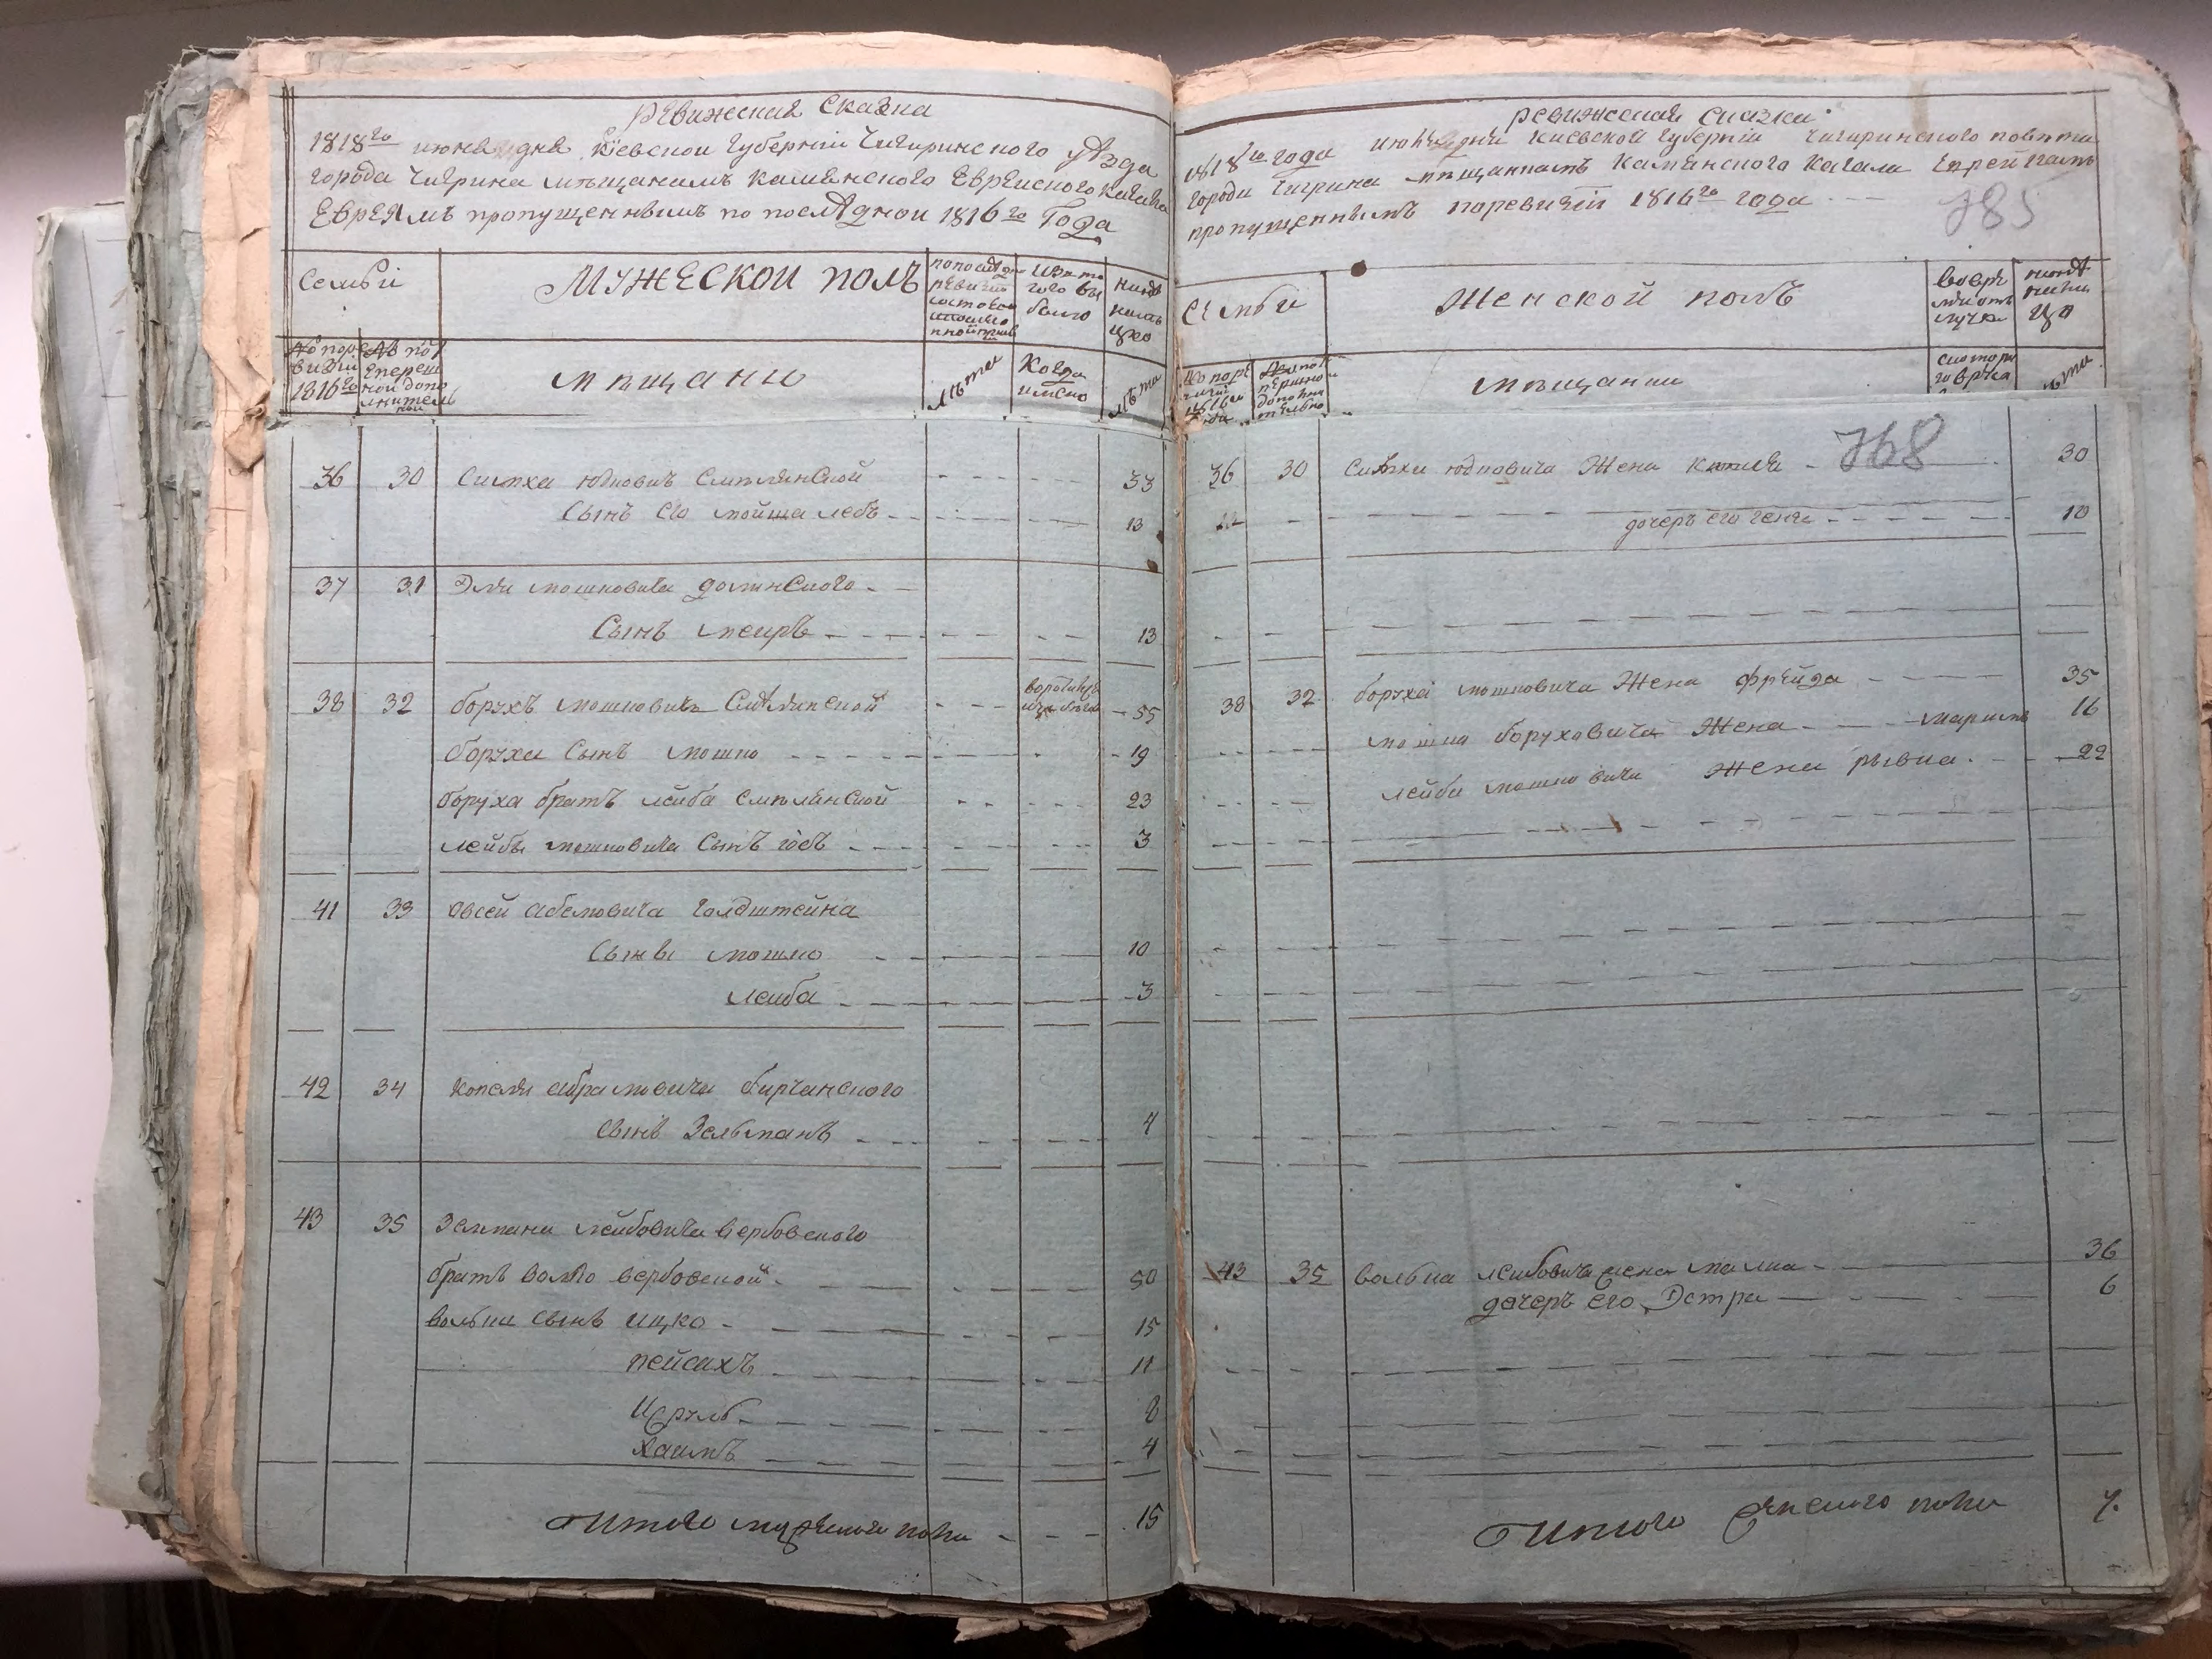 Ревижская Сказка
1818го июня дня Кіевской Губерніи Чигиринского уѣзда
города Чигрина мѣщанамъ Каменского Еврейского Кагала
Евреямъ пропущеннымъ по послѣдной 1816го Года
Семьи
Мужеской полъ
Изъ то
го вы
было
нынѣ
на лицо
№ по ре
визіи
1816го
мѣщане
лѣта
Когда
имено
лѣта
36 30 Симха Юдковичъ Смѣлянской - - - 33
Сынъ его мойша лебъ - - - 13
37 31 Эли мошковича долинского - -
Сынъ меиръ - - - 13
38 32 борухъ мошковичъ Смѣлянской - - - 55
боруха Сынъ мошко - - - 19
боруха братъ лейба смѣлянской - - - 23
лейбы мошковича Сынъ - - - 3
41 33 Овсей абелювича голдштейна
Сынъ мошко - - - 10
леиба - - - 3
42 34 Копеля абрамовича бирчанского
Сынъ Зельманъ - - - 4
43 35 Зелмана лейбовича вербовского
братъ волко вербовской - - - 50
волька сынъ ицко - - - 15
пейсахъ - - - 11
Сруль - - - 8
Хаимъ - - - 4
Итого мужеска пола - - - 15
ревижская сказка
1818го года июня дня Киевской губерніи Чигиринского повѣта
города Чигрина мѣщанкамъ Каменского Кагала Еврейкамъ
пропущеннымъ по ревизіи 1816го года - - -
785
Семьи
Женской полъ
во вре
менной от
лучке
нынѣ
на ли
цо
мѣщанки
лѣта
768
36 30 Симхи юдковича Жена - 30
дочеръ его геня - - - 10
38 32 боруха мошковича Жена фрейда - - - 35
мошка боруховича Жена - - - 16
лейби мошковича Жена рывка - - - 22
43 35 волька лейбовича жена малка - - - 36
дочеръ его Эстра - - - 6
Итого женского пола 7.